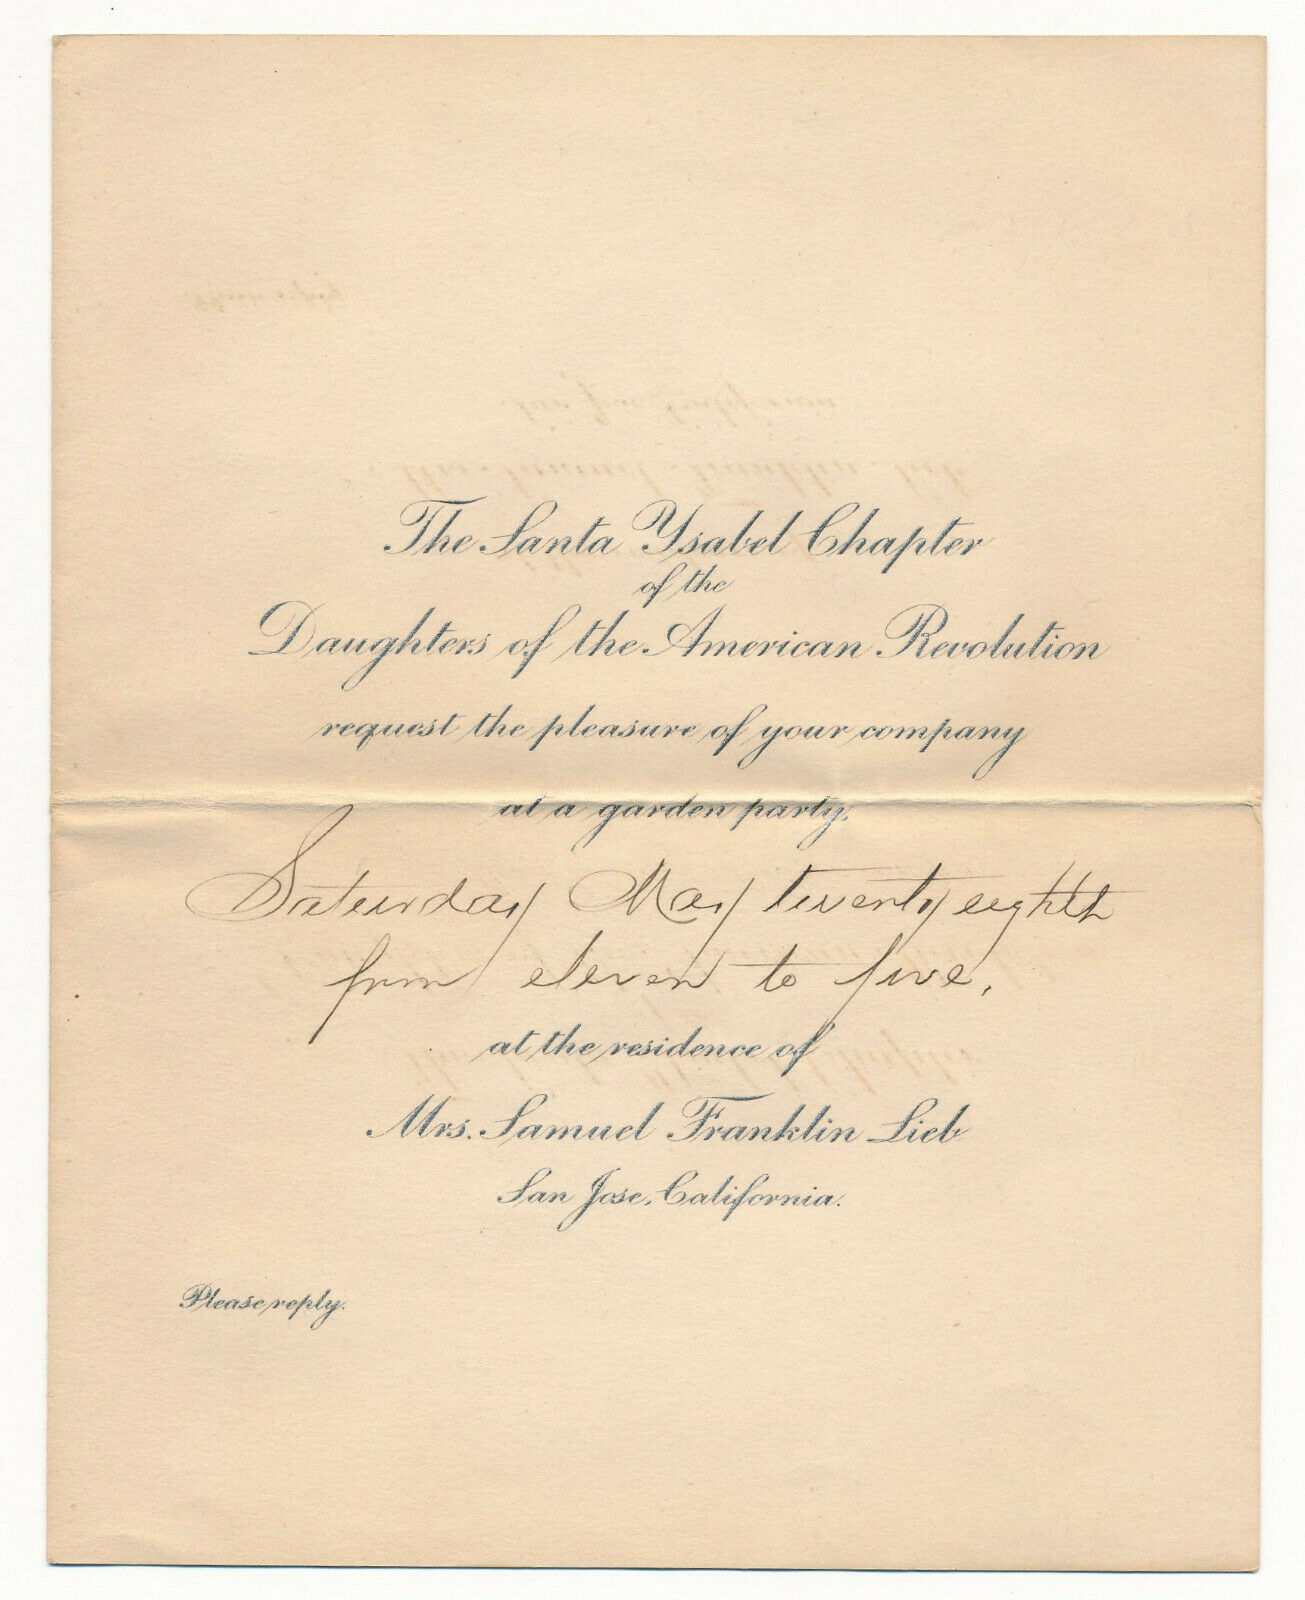 The Santa Ysabel Chapter
of the
Daughters of the American Revolution
request the pleasure of your company
at a garden party,
Saturday May twenty eighth
from eleven to five,
at the residence of
Mrs. Samuel Franklin Lieb
San Jose, California.
Please reply.